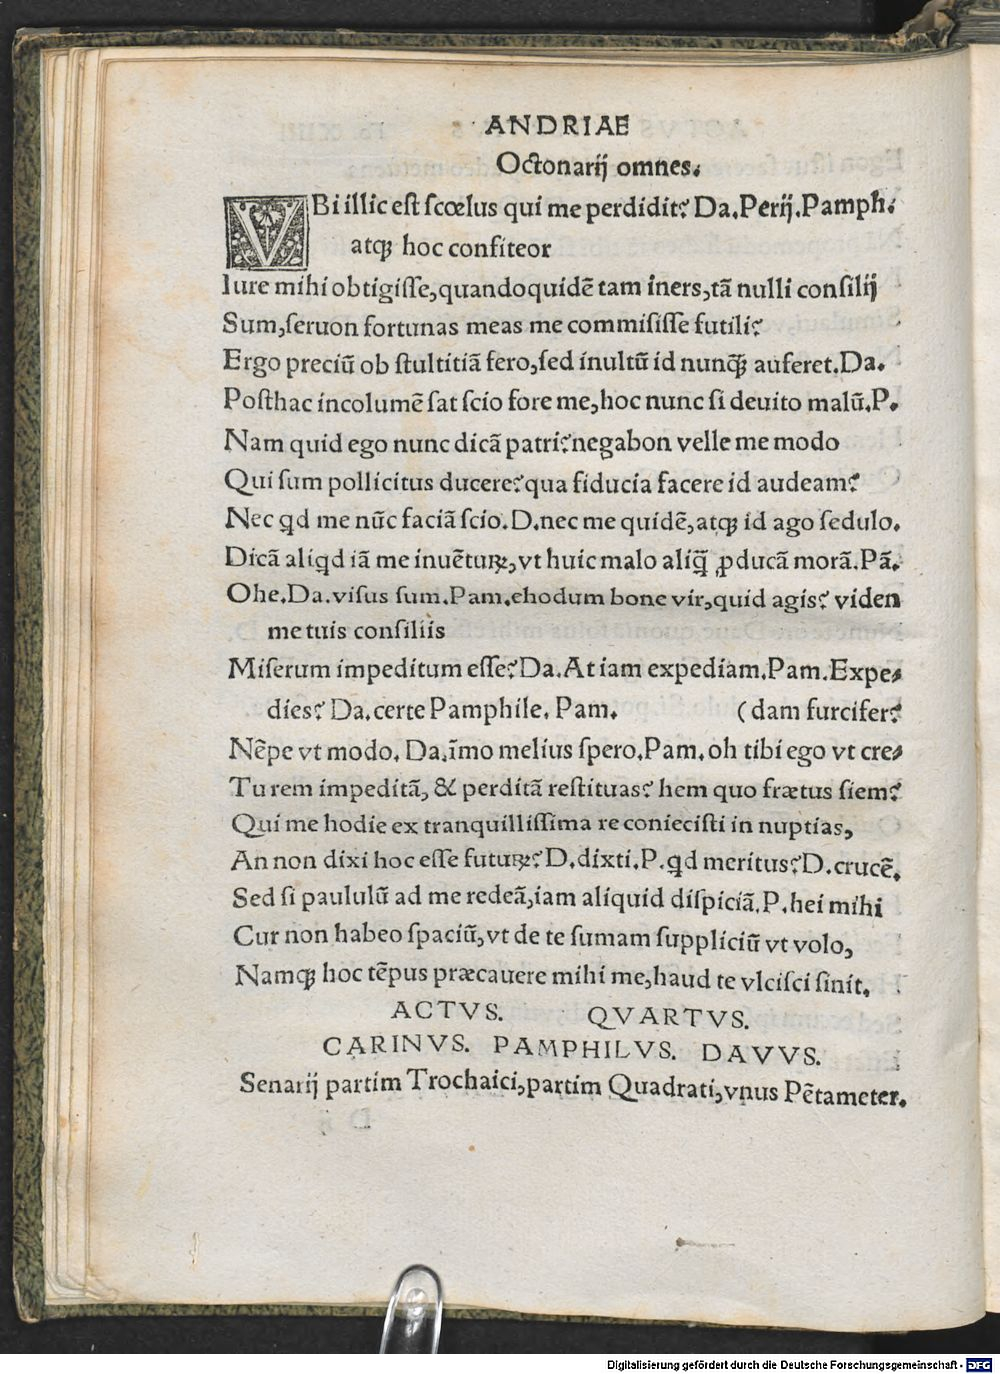 ANDRIAE
Octonarij omnes.
VBi illic est scœlus qui me perdidit? Da. Perij. Pamph.
atqꝫ hoc confiteor
Iure mihi obtigisse, quandoquidē tam iners, tā nulli consilij
Sum, seruon fortunas meas me commisisse futili?
Ergo preciū ob stultitiā fero, sed inultū id nunqꝫ auferet. Da.
Posthac incolumē sat scio fore me, hoc nunc si deuito malū. P.
Nam quid ego nunc dicā patri? negabon velle me modo
Qui sum pollicitus ducere? qua fiducia facere id audeam?
Nec qd me nūc faciā scio. D. nec me quidē, atqꝫ id ago sedulo.
Dicā aliqd iā me inuētuꝝ, vt huic malo aliq̄ ꝓducā morā. Pā.
Ohe. Da. visus sum. Pam. ehodum bone vir, quid agis? viden
me tuis consiliis
Miserum impeditum esse? Da. At iam expediam. Pam. Expe-
dies? Da. certe Pamphile. Pam. (dam furcifer?
Nēpe vt modo. Da. īmo melius spero. Pam. oh tibi ego vt cre-
Tu rem impeditā, & perditā restituas? hem quo frætus siem?
Qui me hodie ex tranquillissima re coniecisti in nuptias,
An non dixi hoc esse futuꝝ? D. dixti. P. qd meritus? D. crucē.
Sed si paululū ad me redeā, iam aliquid dispiciā. P. hei mihi
Cur non habeo spaciū, vt de te sumam suppliciū vt volo,
Namqꝫ hoc tēpus præcauere mihi me, haud te vlcisci sinit.
ACTVS. QVARTVS.
CARINVS. PAMPHILVS. DAVVS.
Senarij partim Trochaici, partim Quadrati, vnus Pētameter.
Digitalisierung gefördert durch die Deutsche Forschungsgemeinschaft - DFG